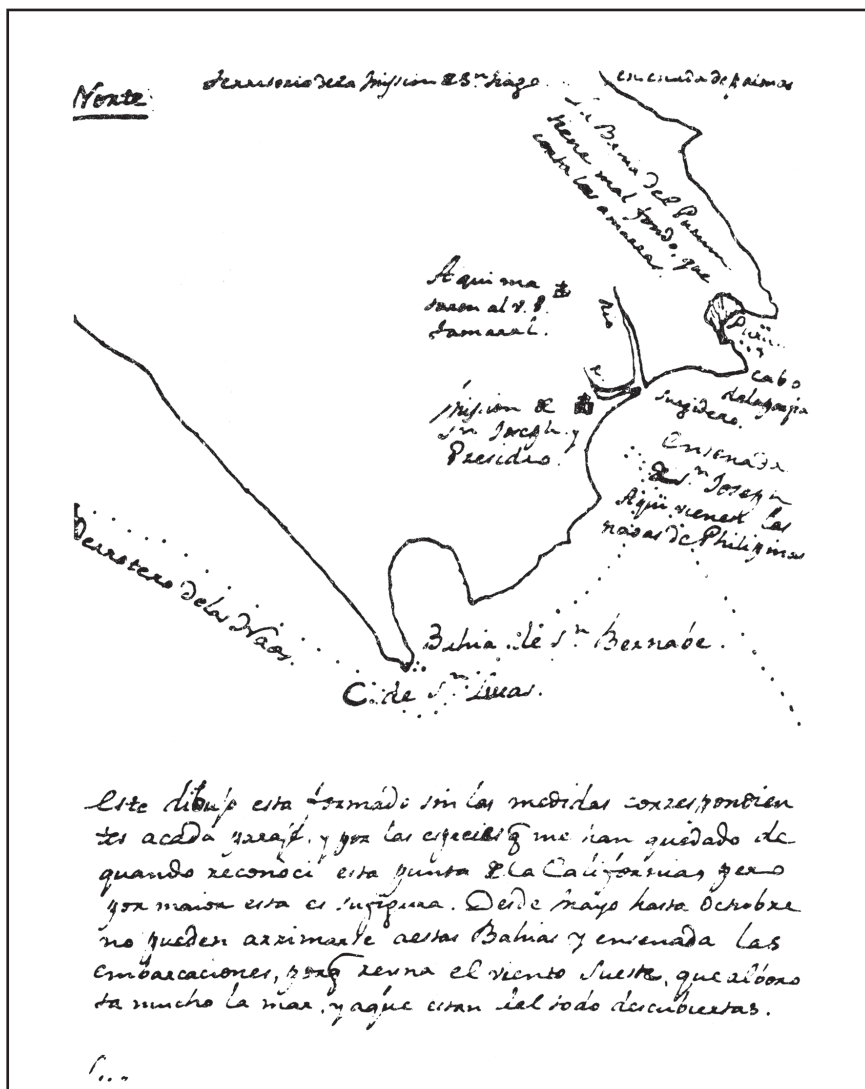 Norte
Territorio de la Mission de Sn. Tiago
ensenada de palmas
La Bahia del Purum
tiene mal fondo, que
corta las amarras.
Aqui ma
taron al v. P.
Tamaral.
Rio
Mission de
Sn. Joseph y
Presidio.
cabo
surgidero.
Ensenada
de Sn. Joseph
Aqui vienen las
naos de Philipinas
Derrotero de las Naos.
Bahia de Sn. Bernabe.
C. de Sn. Lucas.
Este dibujo esta formado sin las medidas correspondien
tes acada paraje, y por las especies q̃ me han quedado de
quando reconoci esta punta de la California, pero
por maior esta es su figura. Desde Mayo hasta Octubre
no pueden arrimarse a estas Bahias y ensenada las
embarcaciones, porq̃ reina el viento Sueste, que alboro
ta mucho la mar, y aqui estan del todo descubiertas.